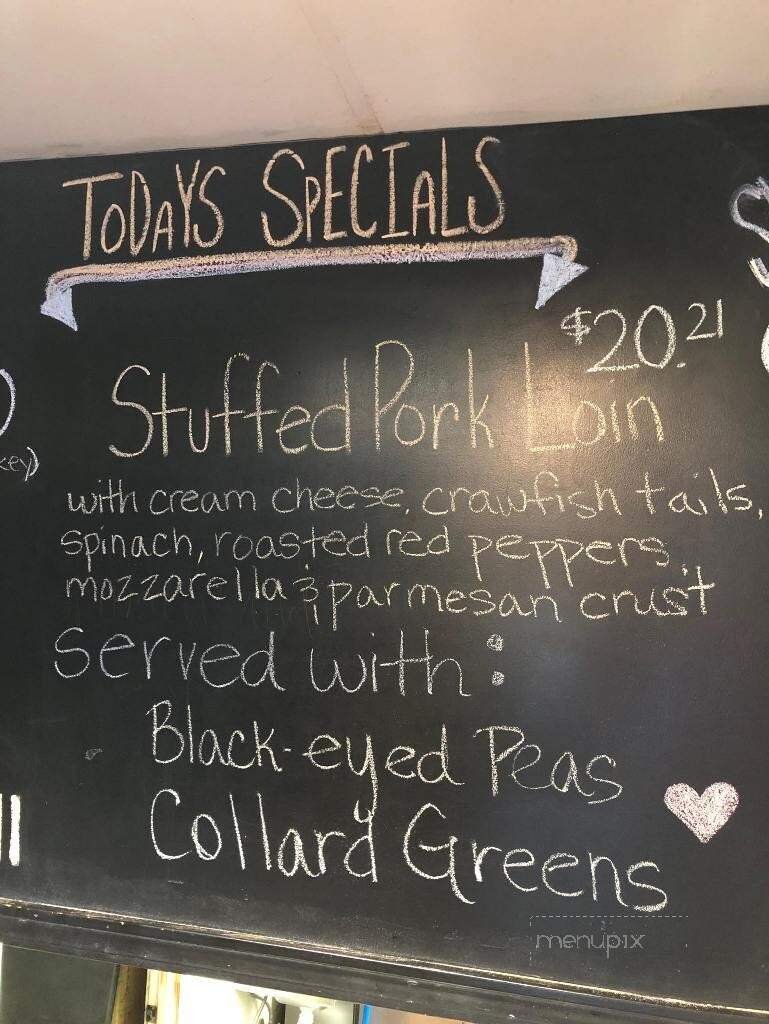 TODAYS SPECIALS
$20.21
Stuffed Pork Loin
with cream cheese, crawfish tails,
spinach, roasted red peppers,
mozzarella & parmesan crust
served with:
Black-eyed Peas
Collard Greens
key)
menupix